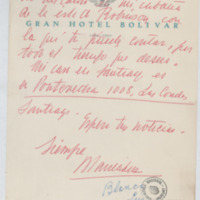 mi cabaña
de la isla de Robinson con
GRAN HOTEL BOLIVAR
la que te puedes contar, por
todo el tiempo que desees.
Mi casa en Santiago, es
Pontevedra 1005, Las Condes
Santiago.
Espero tus noticias.
Siempre
Blanca